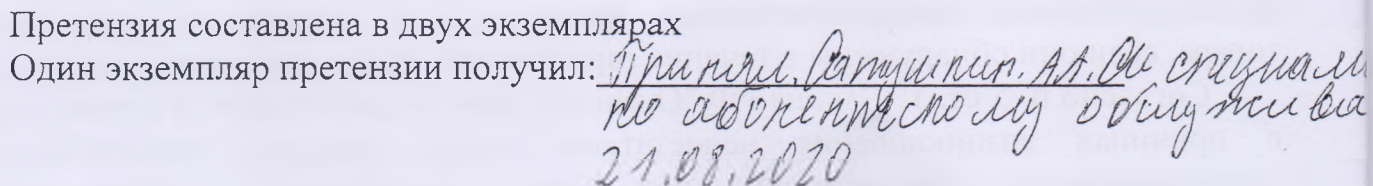 Претензия составлена в двух экземплярах
Один экземпляр претензии получил: Принял. А.А. специали
по абонентскому обслужива
21.08.2020